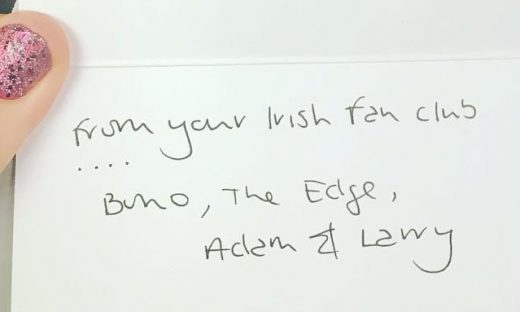 from your Irish fan club
....
Bono, The Edge,
Adam & Larry